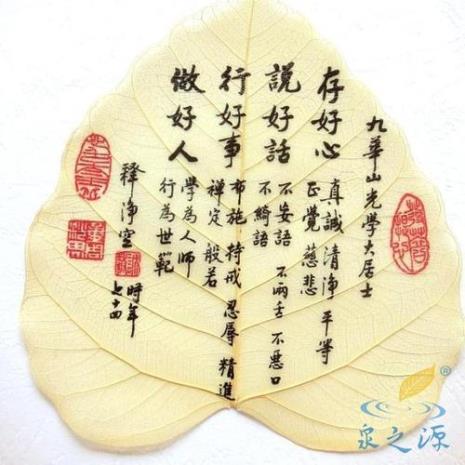 九華山光學大居士
存好心
真誠清淨平等
正覺慈悲
說好話
不妄語 不兩舌 不惡口
不綺語
行好事
布施 持戒 忍辱 精進
禪定 般若
做好人
學為人師
行為世範
釋淨空
時年
七十四
泉之源®